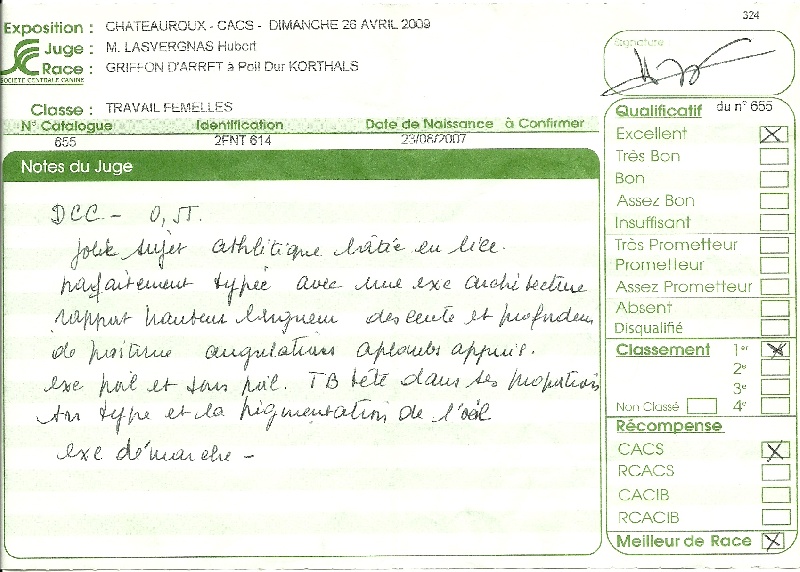 324
Exposition : CHATEAUROUX - CACS - DIMANCHE 26 AVRIL 2009
Juge : M. LASVERGNAS Hubert
Race : GRIFFON D'ARRET à Poil Dur KORTHALS
SOCIETE CENTRALE CANINE
Classe : TRAVAIL FEMELLES
N° Catalogue Identification Date de Naissance à Confirmer
655 2FNT 614 23/08/2007
Notes du Juge
DCC -
jolie sujet athlétique bâtie en lice.
parfaitement typée avec une exc architecture
rapport hauteur longueur descente et profondeur
de poitrine angulations aplombs appuis.
exc poil et sous poil. TB tête dans ses proportions
son type et la pigmentation de l'œil
exc démarche -
Signature
Qualificatif du n° 655
Excellent
Très Bon
Bon
Assez Bon
Insuffisant
Très Prometteur
Prometteur
Assez Prometteur
Absent
Disqualifié
Classement 1er
2e
3e
Non Classé 4e
Récompense
CACS
RCACS
CACIB
RCACIB
Meilleur de Race